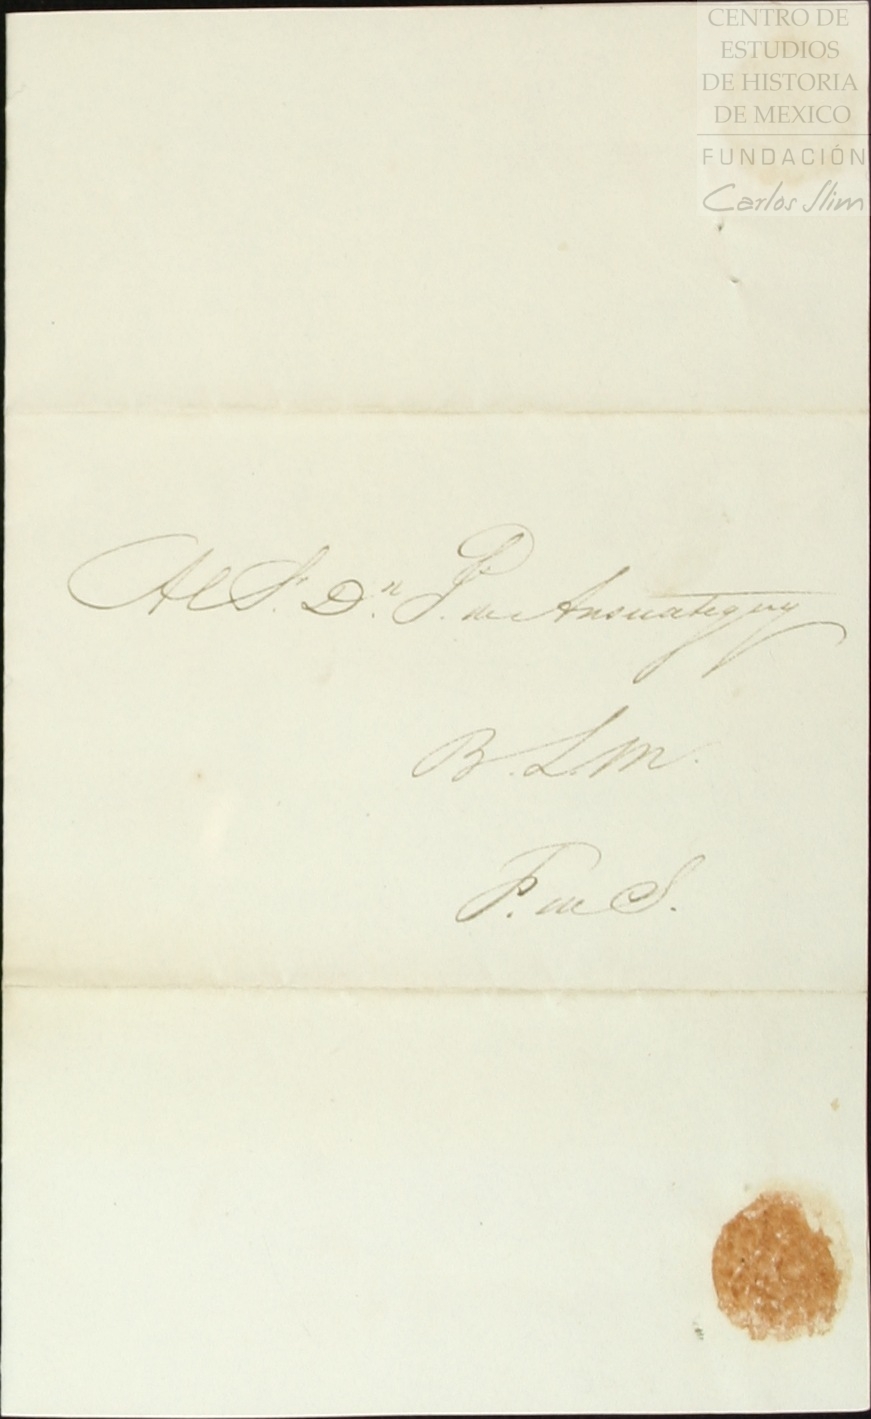 CENTRO DE
ESTUDIOS
DE HISTORIA
DE MEXICO
FUNDACIÓN
Carlos Slim
Al Sr. Dn. P. de Ansuateguy
B. L. M.
F. de S.